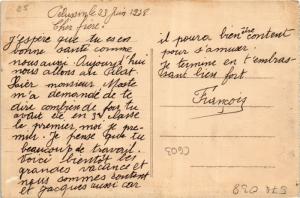 25
Pélussin, le 23 juin 1928
Cher frère,
J'espère que tu es en
bonne santé comme
nous aussi. Aujourd'hui
nous allons au Pilat.
Hier monsieur
m'a demandé de te
dire combien de fois tu
avait été en 3e classe
le premier, moi je pre-
mier. Je pense que tu
beaucoup de travail.
Voici bientôt les
grandes vacances et
nous sommes content
et Jacques aussi car
il poura bien être content
pour s'amuser.
Je termine en t'embras-
sant bien fort
François